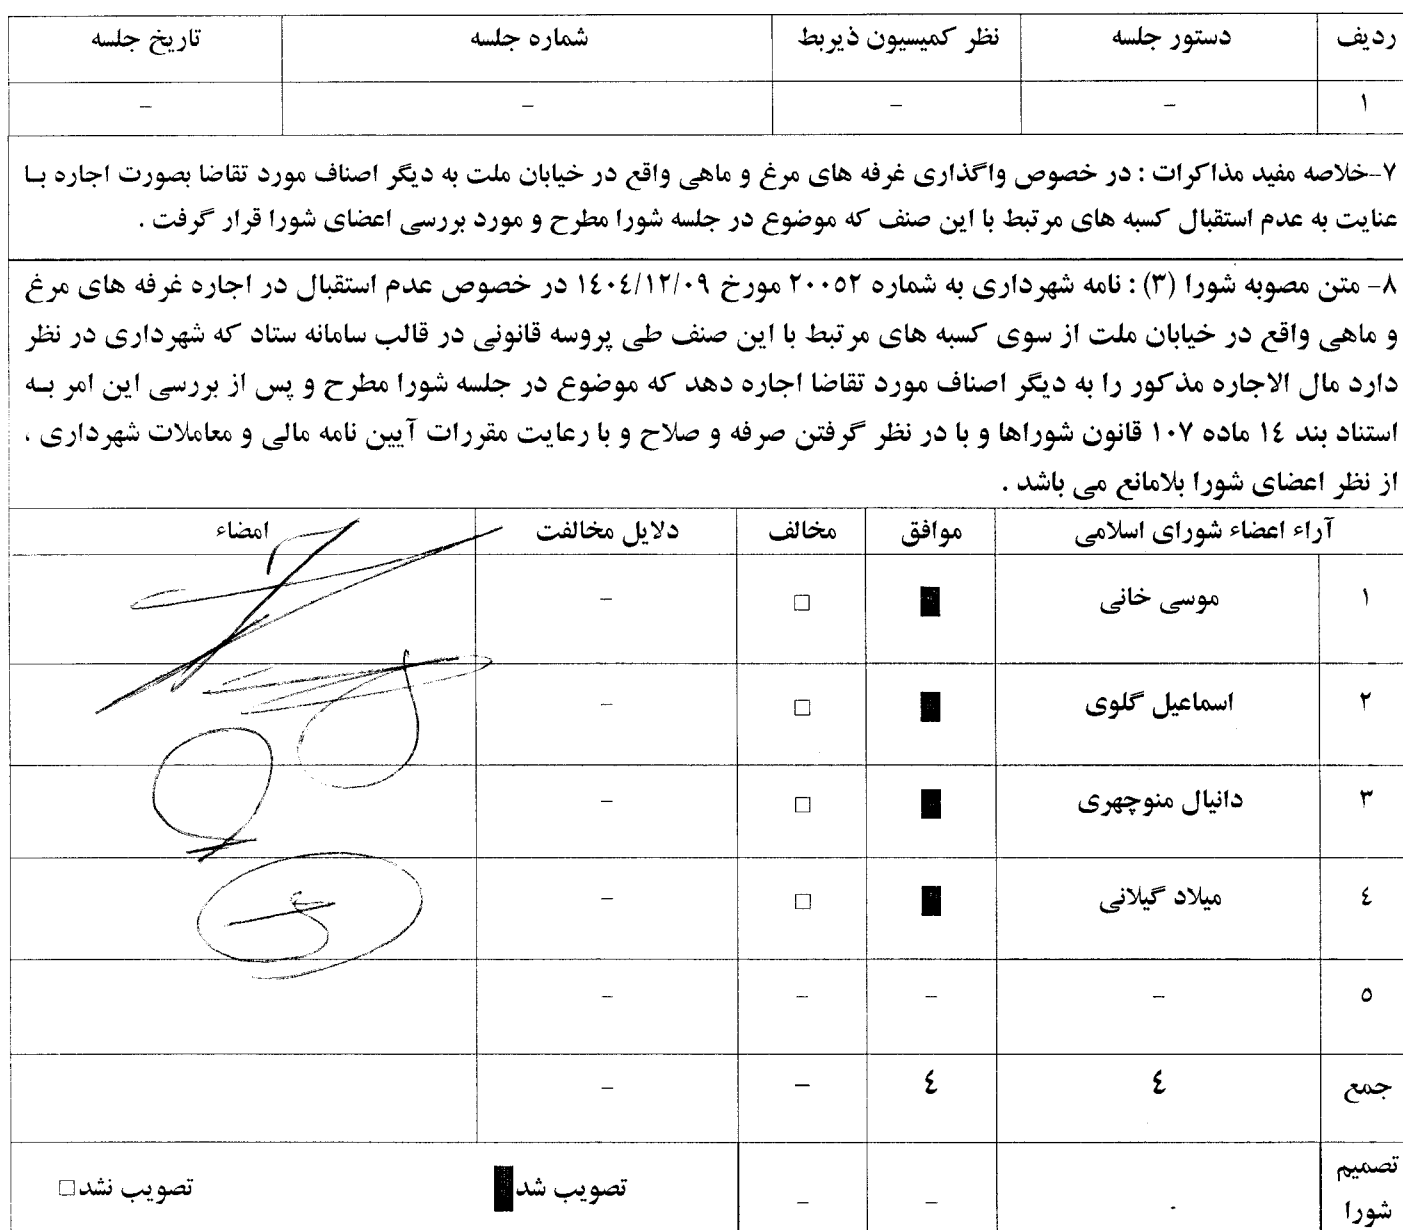 ردیف دستور جلسه نظر کمیسیون ذیربط شماره جلسه تاریخ جلسه
۱ – – – –
۷-خلاصه مفید مذاکرات : در خصوص واگذاری غرفه های مرغ و ماهی واقع در خیابان ملت به دیگر اصناف مورد تقاضا بصورت اجاره بـا
عنایت به عدم استقبال کسبه های مرتبط با این صنف که موضوع در جلسه شورا مطرح و مورد بررسی اعضای شورا قرار گرفت .
۸- متن مصوبه شورا (۳) : نامه شهرداری به شماره ۲۰۰۵۲ مورخ ۱۴۰۴/۱۲/۰۹ در خصوص عدم استقبال در اجاره غرفه های مرغ
و ماهی واقع در خیابان ملت از سوی کسبه های مرتبط با این صنف طی پروسه قانونی در قالب سامانه ستاد که شهرداری در نظر
دارد مال الاجاره مذکور را به دیگر اصناف مورد تقاضا اجاره دهد که موضوع در جلسه شورا مطرح و پس از بررسی این امر بـه
استناد بند ۱۴ ماده ۱۰۷ قانون شوراها و با در نظر گرفتن صرفه و صلاح و با رعایت مقررات آیین نامه مالی و معاملات شهرداری ،
از نظر اعضای شورا بلامانع می باشد .
آراء اعضاء شورای اسلامی موافق مخالف دلایل مخالفت امضاء
۱ موسی خانی ■ □ –
۲ اسماعیل گلوی ■ □ –
۳ دانیال منوچهری ■ □ –
۴ میلاد گیلانی ■ □ –
۵ – – – –
جمع ۴ ۴ – –
تصمیم شورا . – – تصویب شد■ تصویب نشد□